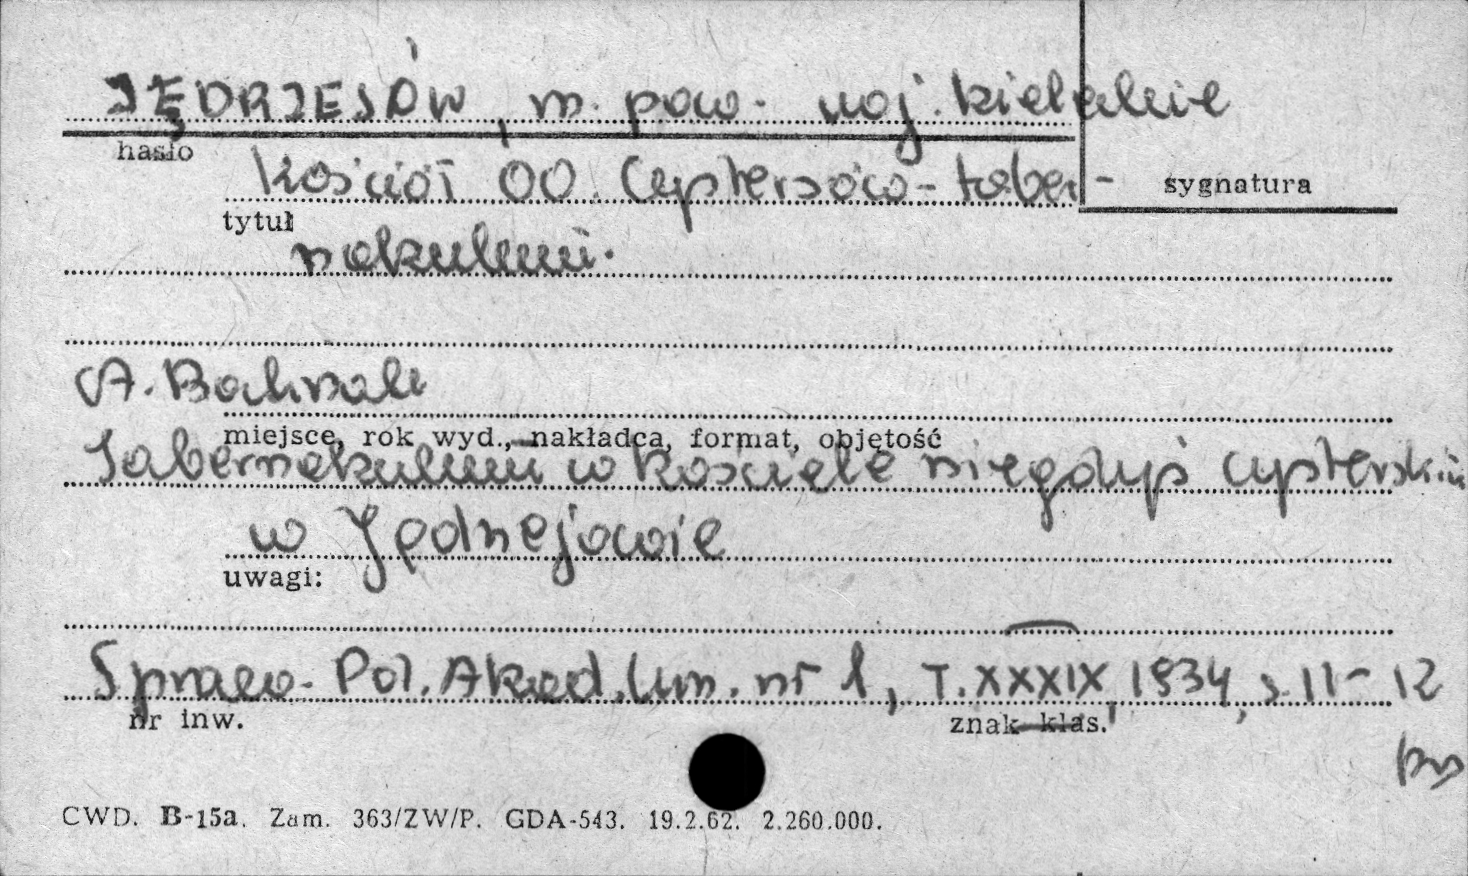 JĘDRZEJÓW, m. pow. woj. kieleckie
hasło
Kościół OO. Cystersów - taber-
sygnatura
tytuł
nakulum.
A. Bochnak
miejsce, rok wyd., nakładca, format, objętość
Tabernakulum w kościele niegdyś cysterskim
w Jędrzejowie
uwagi:
Spraw. Pol. Akad. Um. nr 1, T. XXXIX, 1934, s. 11-12
nr inw.
znak klas.
CWD. B-15a. Zam. 363/ZW/P. GDA-543. 19.2.62. 2.260.000.